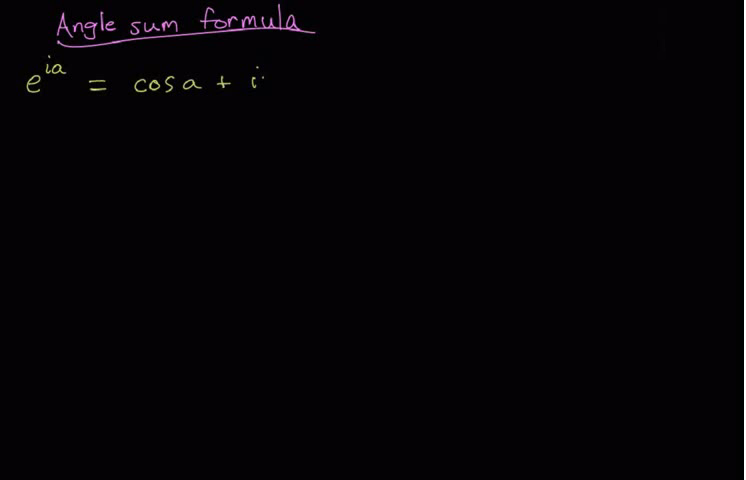 Angle sum formula
e^{ia} = cos a + i